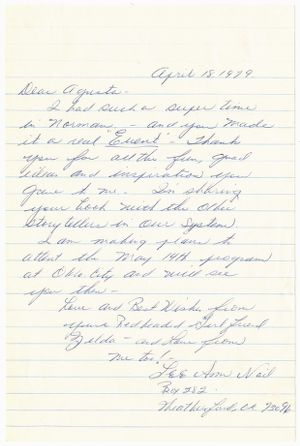 April 18, 1979
Dear Augusta -
I had such a super time
in Norman, - and you made
it a real "Event" - Thank
you for all the fun, good
ideas and inspiration you
gave to me. I'm sharing
your book with the other
storytellers in our System.
I am making plans to
attend the May 14th program
at Okla. City and will see
you then -
Love and Best Wishes from
your Redheaded Girl Friend
Zelda - and Love from
me too! -
Lee Ann Neil
Box 282
Weatherford, Ok. 73096